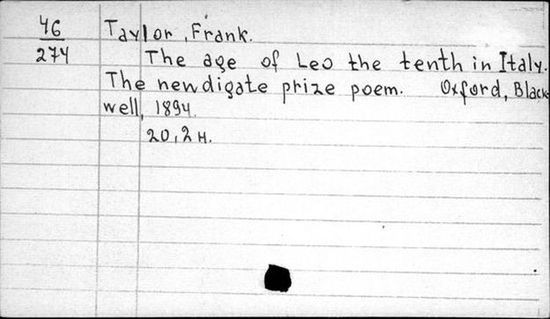 46
274
Taylor, Frank.
The age of Leo the tenth in Italy.
The newdigate prize poem. Oxford, Black
well, 1894.
20, 2 H.